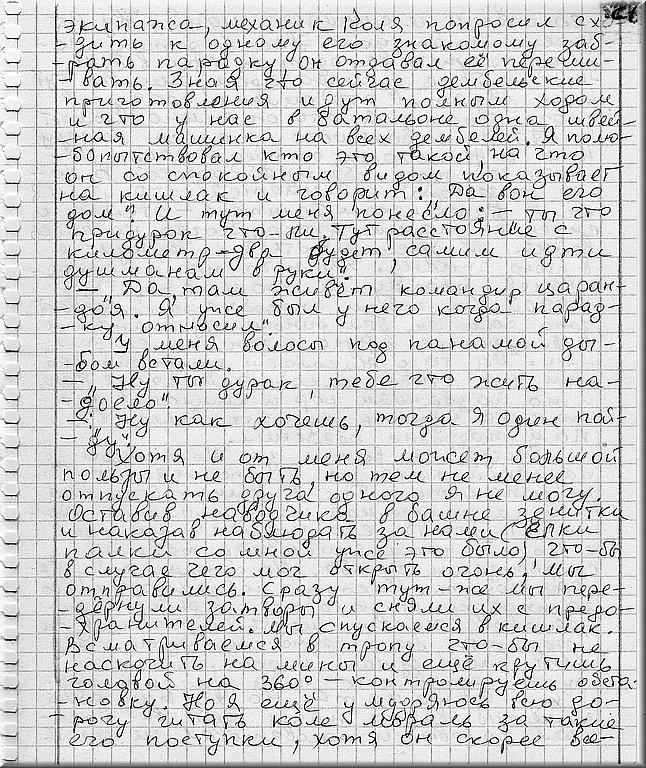 21
экипажа, механик Коля попросил сх-
-дить к одному его знакомому заб-
-рать парадку он отдавал её переши-
-вать. Зная что сейчас дембельские
приготовления идут полным ходом
и что у нас в батальоне одна швей-
-ная машинка на всех дембелей. Я полю-
-бопытствовал кто это такой, на что
он со спокойным видом показывает
на кишлак и говорит: „Да вон его
дом". И тут меня понесло: – ты что
придурок что-ли. Тут расстояние с
километр-два будет, самим идти
душманам в руки".
– „Да, там живёт командир царан-
-доя. Я уже был у него когда парад-
-ку относил".
У меня волосы под панамой ды-
-бом встали.
– „Ну ты дурак, тебе что жить на-
-доело".
– „Ну как хочешь, тогда я один пой-
-ду".
Хотя и от меня может большой
пользы и не быть, но тем не менее
отпускать друга одного я не могу.
Оставив наводчика в башне зенитки
и наказав наблюдать за нами (ёлки
палки со мной уже это было) что-бы
в случае чего мог открыть огонь, мы
отправились. Сразу тут-же мы пере-
-дёрнули затворы и сняли их с предо-
-хранителей. Мы спускаемся в кишлак.
Всматриваемся в тропу что-бы не
наскочить на мины и ещё крутишь
головой на 360° – контролируешь обста-
-новку. Но я ещё умудряюсь всю до-
-рогу читать Коле мораль за такие
его поступки, хотя он скорее все-